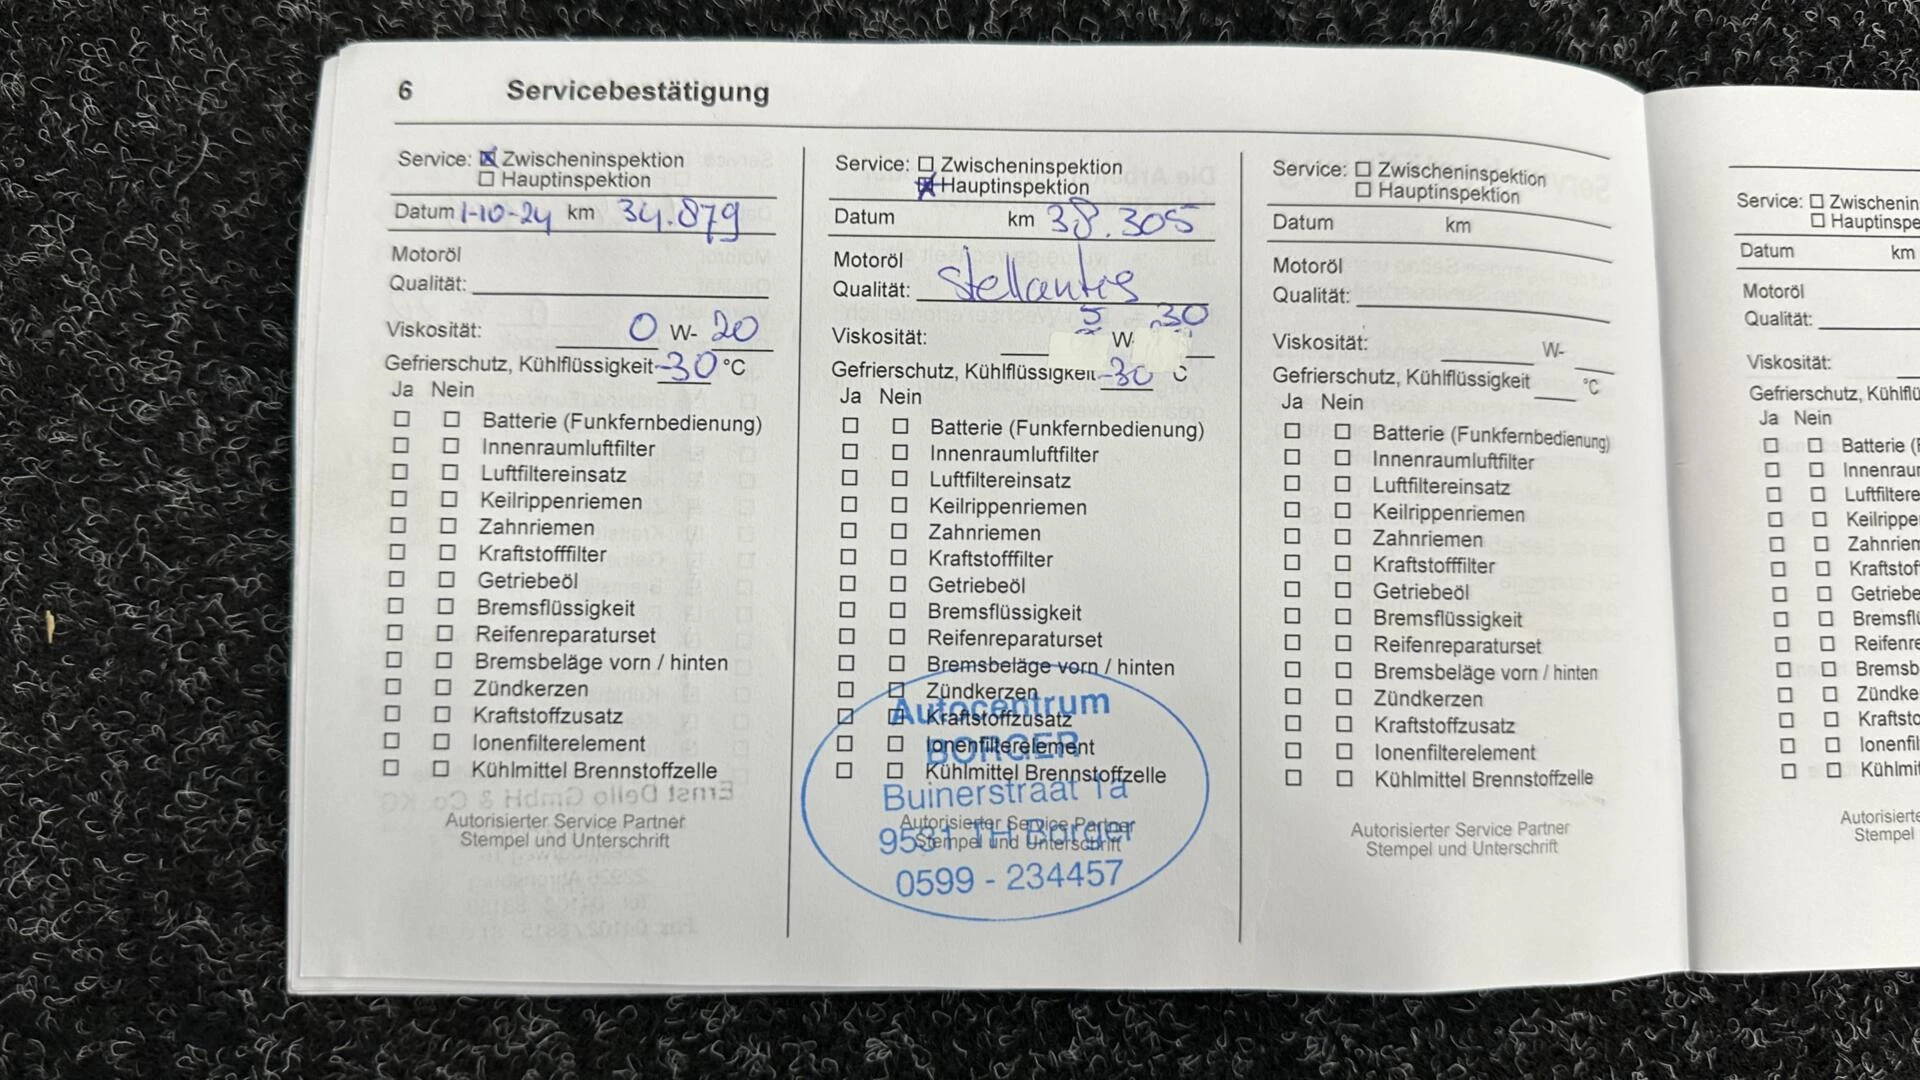 6 Servicebestätigung
Service: ☒ Zwischeninspektion
☐ Hauptinspektion
Datum 1-10-24 km 34.879
Motoröl
Qualität:
Viskosität: 0 W- 20
Gefrierschutz, Kühlflüssigkeit -30 °C
Ja Nein
☐ ☐ Batterie (Funkfernbedienung)
☐ ☐ Innenraumluftfilter
☐ ☐ Luftfiltereinsatz
☐ ☐ Keilrippenriemen
☐ ☐ Zahnriemen
☐ ☐ Kraftstofffilter
☐ ☐ Getriebeöl
☐ ☐ Bremsflüssigkeit
☐ ☐ Reifenreparaturset
☐ ☐ Bremsbeläge vorn / hinten
☐ ☐ Zündkerzen
☐ ☐ Kraftstoffzusatz
☐ ☐ Ionenfilterelement
☐ ☐ Kühlmittel Brennstoffzelle
Autorisierter Service Partner
Stempel und Unterschrift
Service: ☐ Zwischeninspektion
☒ Hauptinspektion
Datum km 38.305
Motoröl
Qualität: Stellantis
5 30
Viskosität: W-
Gefrierschutz, Kühlflüssigkeit -30 C
Ja Nein
☐ ☐ Batterie (Funkfernbedienung)
☐ ☐ Innenraumluftfilter
☐ ☐ Luftfiltereinsatz
☐ ☐ Keilrippenriemen
☐ ☐ Zahnriemen
☐ ☐ Kraftstofffilter
☐ ☐ Getriebeöl
☐ ☐ Bremsflüssigkeit
☐ ☐ Reifenreparaturset
☐ ☐ Bremsbeläge vorn / hinten
☐ ☐ Zündkerzen
☐ ☐ Kraftstoffzusatz
☐ ☐ Ionenfilterelement
☐ ☐ Kühlmittel Brennstoffzelle
Autorisierter Service Partner
Stempel und Unterschrift
Autocentrum
BORGER
Buinerstraat 1a
9531 TH Borger
0599 - 234457
Service: ☐ Zwischeninspektion
☐ Hauptinspektion
Datum km
Motoröl
Qualität:
Viskosität: W-
Gefrierschutz, Kühlflüssigkeit °C
Ja Nein
☐ ☐ Batterie (Funkfernbedienung)
☐ ☐ Innenraumluftfilter
☐ ☐ Luftfiltereinsatz
☐ ☐ Keilrippenriemen
☐ ☐ Zahnriemen
☐ ☐ Kraftstofffilter
☐ ☐ Getriebeöl
☐ ☐ Bremsflüssigkeit
☐ ☐ Reifenreparaturset
☐ ☐ Bremsbeläge vorn / hinten
☐ ☐ Zündkerzen
☐ ☐ Kraftstoffzusatz
☐ ☐ Ionenfilterelement
☐ ☐ Kühlmittel Brennstoffzelle
Autorisierter Service Partner
Stempel und Unterschrift
Service: ☐ Zwischenin
☐ Hauptinspe
Datum km
Motoröl
Qualität:
Viskosität:
Gefrierschutz, Kühlflü
Ja Nein
☐ ☐ Batterie (F
☐ ☐ Innenrau
☐ ☐ Luftfiltere
☐ ☐ Keilrippe
☐ ☐ Zahnriem
☐ ☐ Kraftstof
☐ ☐ Getriebe
☐ ☐ Bremsflü
☐ ☐ Reifenre
☐ ☐ Bremsb
☐ ☐ Zündke
☐ ☐ Kraftsto
☐ ☐ Ionenfil
☐ ☐ Kühlmit
Autorisierte
Stempel